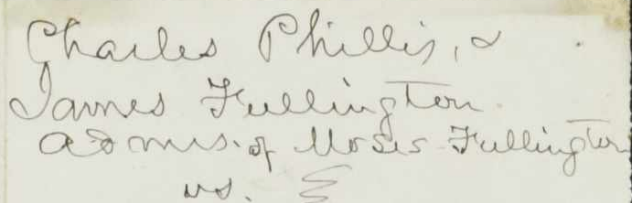 Charles Phillis, &
James Fullington
adms. of Moses Fullington
vs.